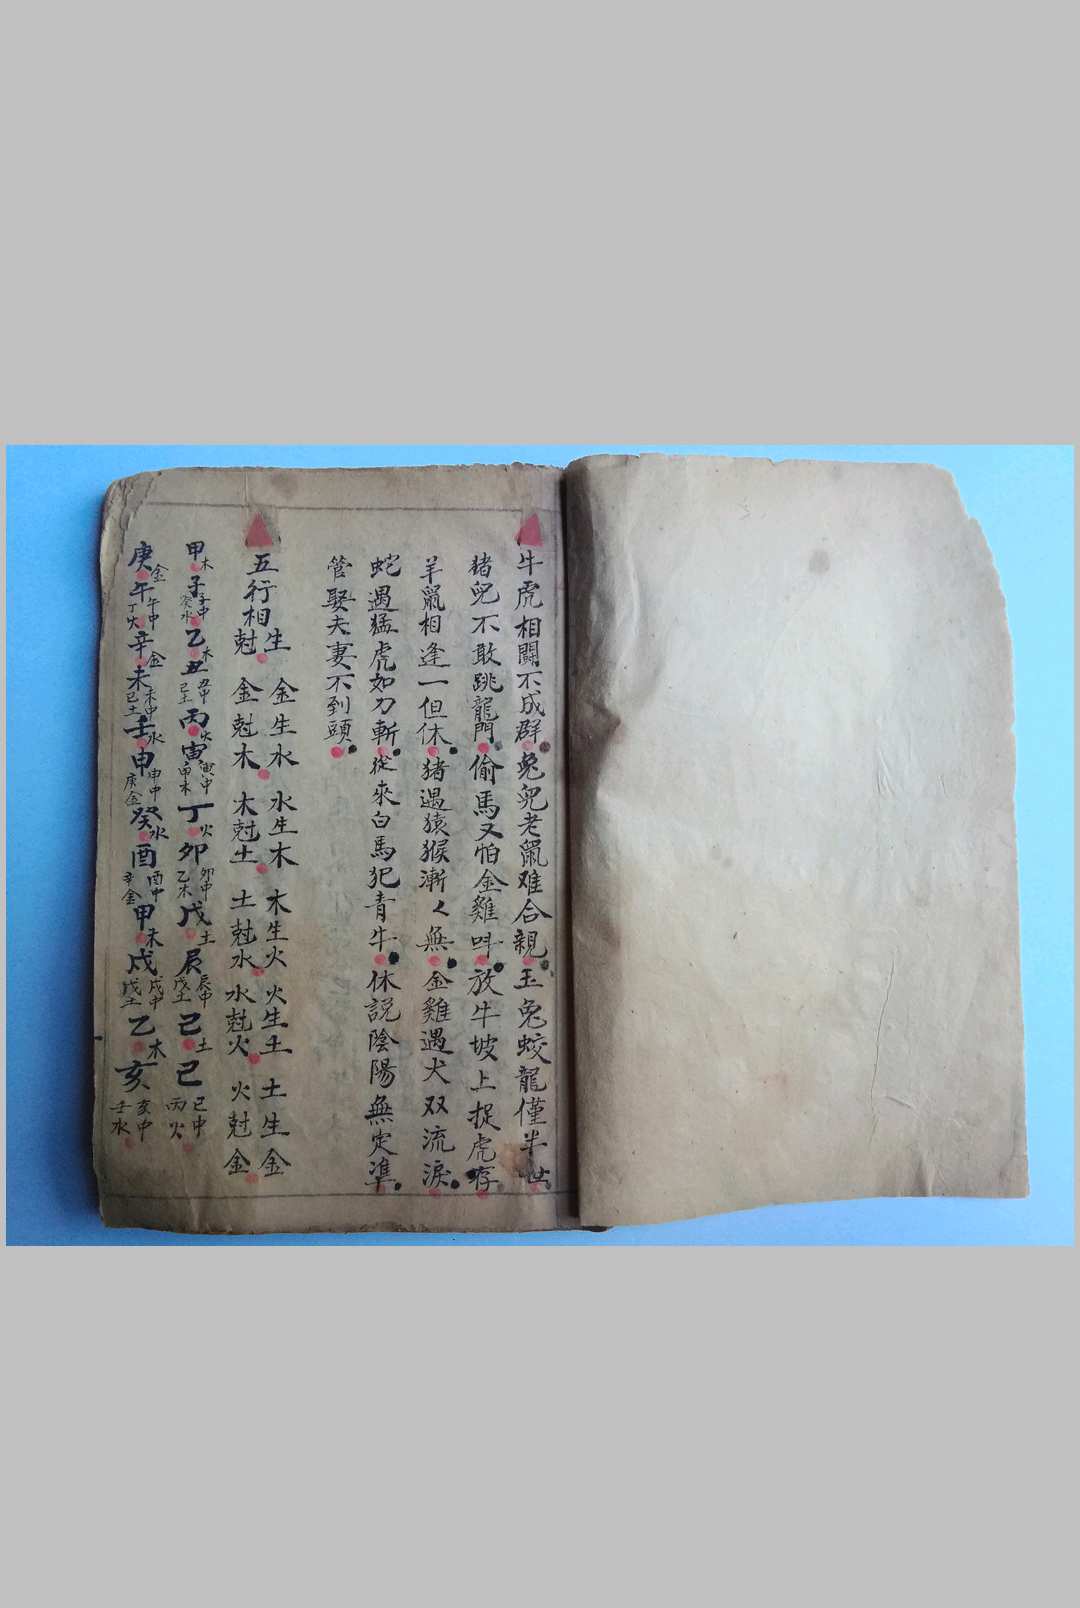 牛虎相鬪不成群兔兒老鼠难合親玉兔蛟龍僅半世
猪兒不敢跳龍門偷馬又怕金雞呌放牛坡上捉虎存
羊鼠相逢一但休猪遇猿猴漸々無金雞遇犬双流淚
蛇遇猛虎如刀斬從來白馬犯青牛休説陰陽無定凖
管娶夫妻不到頭
五行相生尅
金生水 水生木 木生火 火生土 土生金
金尅木 木尅土 土尅水 水尅火 火尅金
甲木子子中癸水乙木丑丑中己土丙火寅寅中甲木丁火卯卯中乙木戊土辰辰中戊土己土巳巳中丙火
庚金午午中丁火辛金未未中己土壬水申申中庚金癸水酉酉中辛金甲木戍戍中戊土乙木亥亥中壬水